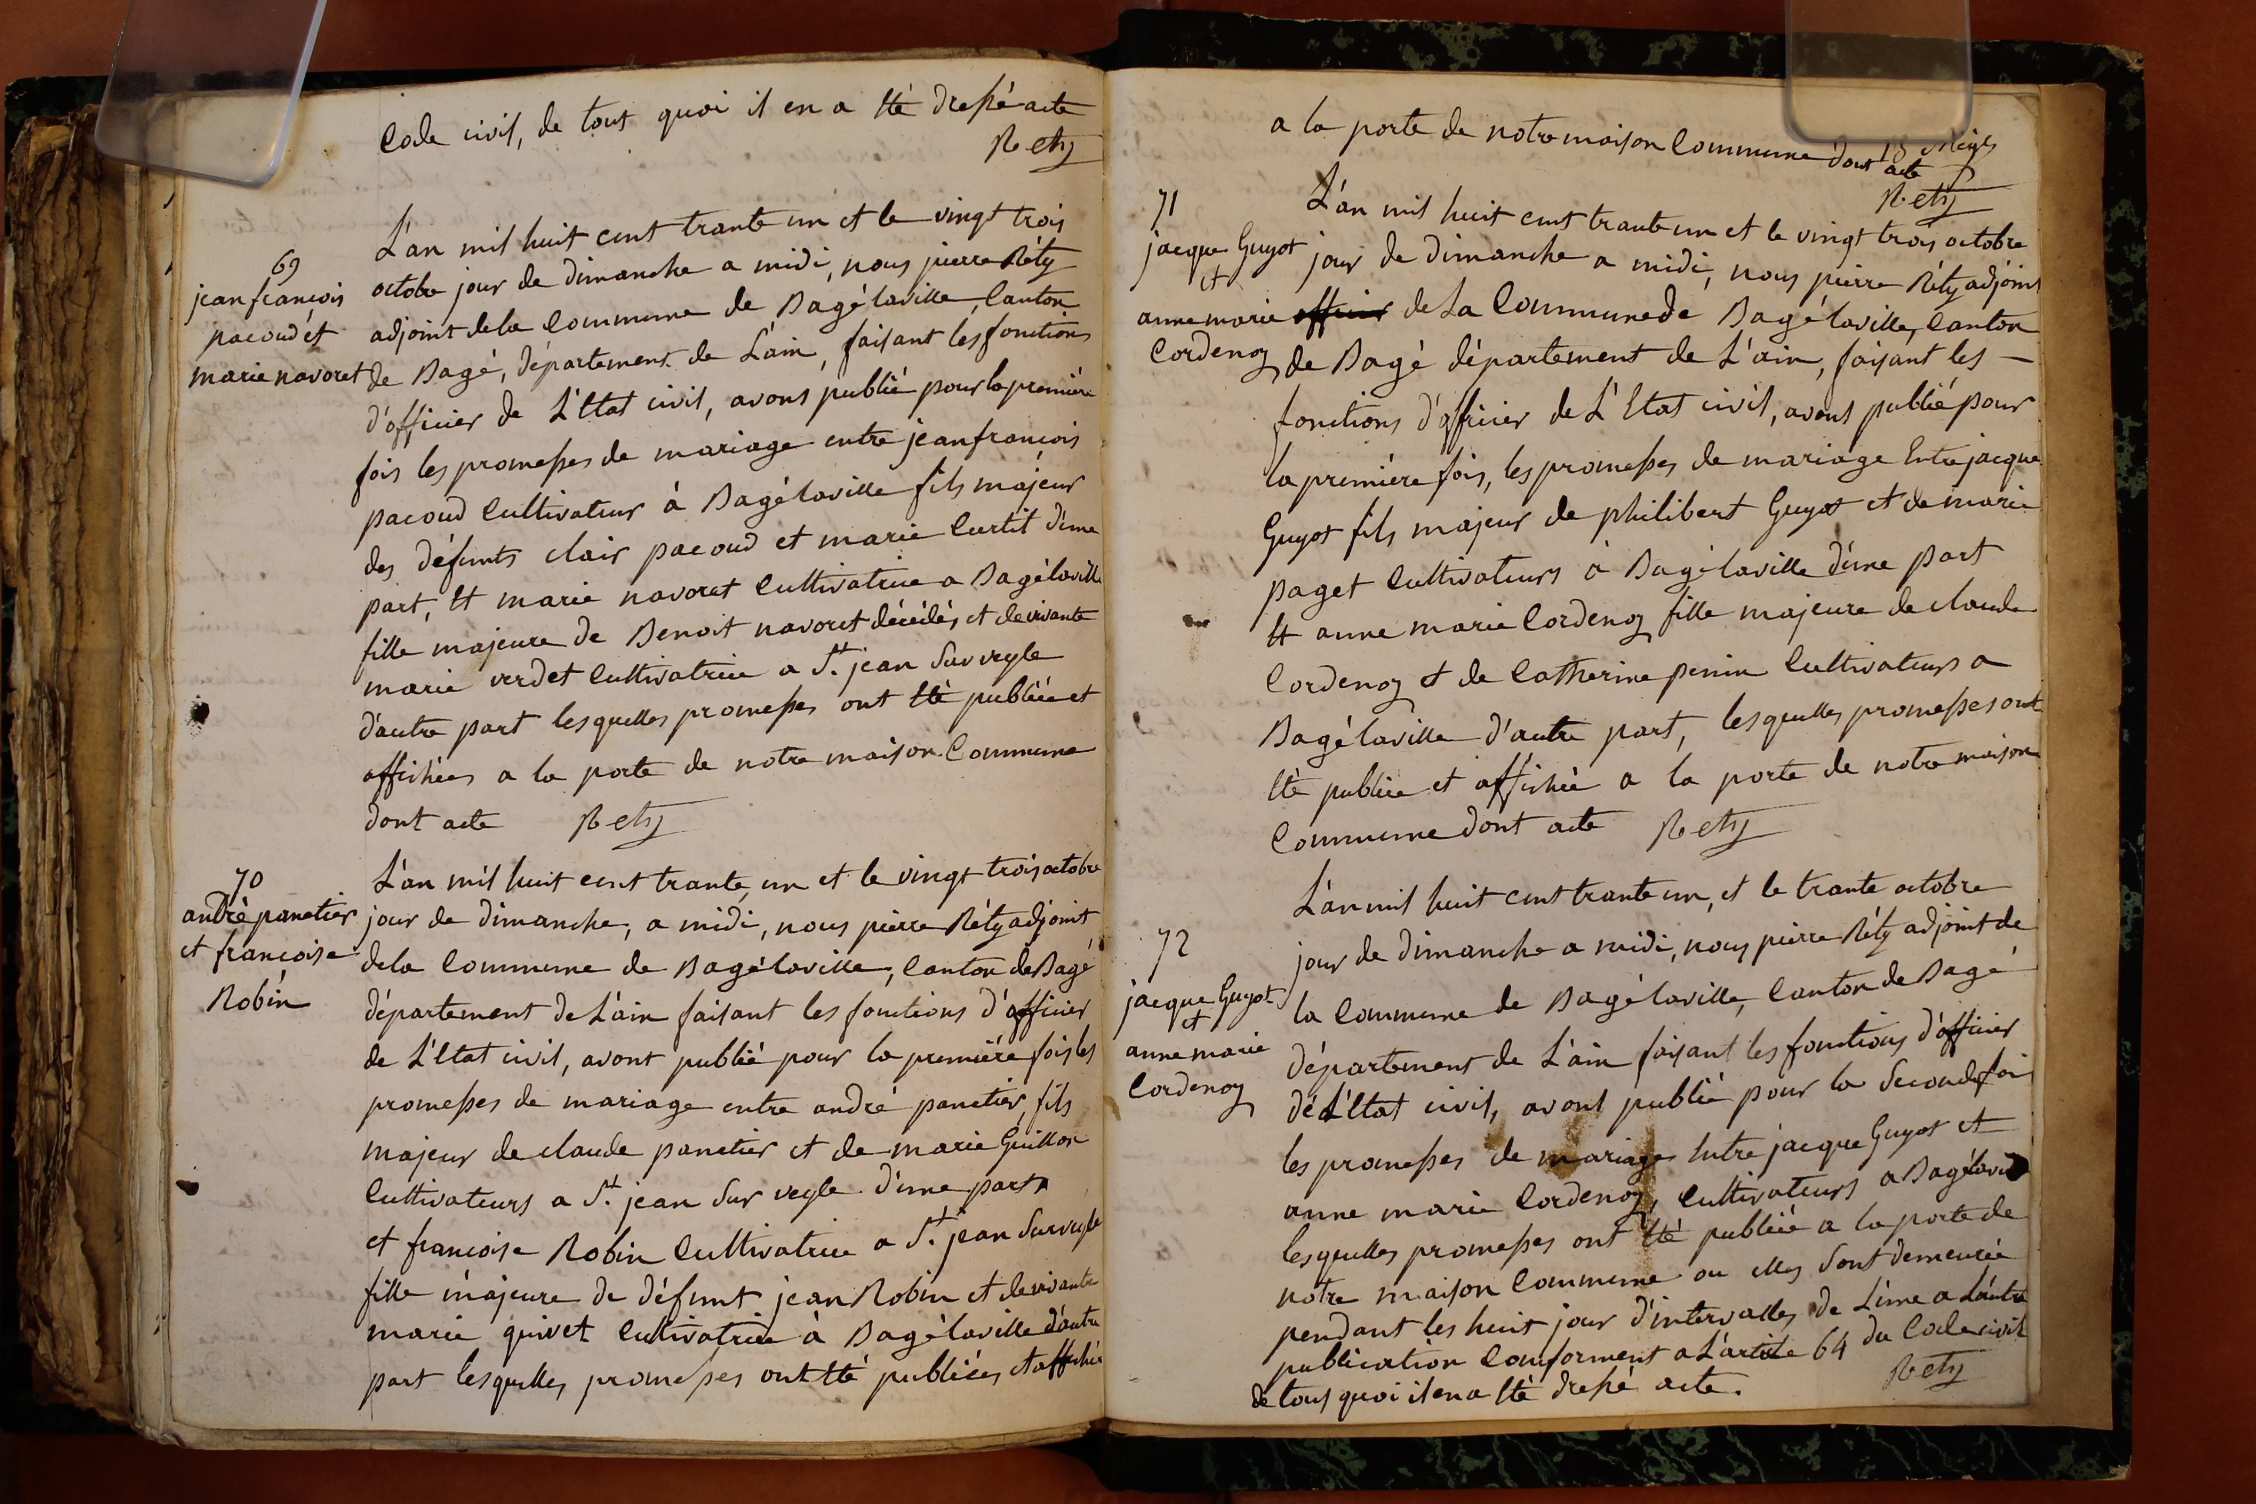 Code civil, de tout quoi il en a été dressé acte
Rety
69
jean françois
pacoud et
marie navoret
L'an mil huit cent trante un et le vingt trois
octobre jour de dimanche a midi, nous pierre Réty
adjoint de la Commune de Bagélaville, Canton
de Bagé, département de L'ain, faisant les fonctions
d'officier de L'Etat civil, avons publié pour la première
fois les promesses de mariage entre jean françois
pacoud Cultivateur à Bagélaville fils majeur
des défunts clair pacoud et marie Curtit d'une
part, Et marie navoret Cultivatrice a Bagélaville
fille majeure de Benoit navoret décédés et de vivante
marie verdet Cultivatrice a St. jean Sur veyle
d'autre part lesquelles promesses ont été publiée et
affichées a la porte de notre maison Commune
dont acte Rety
70
andré panetier
et françoise
Robin
L'an mil huit cent trante, un et le vingt trois octobre
jour de dimanche, a midi, nous pierre Réty adjoint
de la Commune de Bagélaville, Canton de Bagé
département de L'ain faisant les fonctions d'officier
de L'Etat civil, avont publié pour la première fois les
promesses de mariage entre andré panetier, fils
majeur de claude panetier et de marie Guillon
Cultivateurs a St. jean Sur veyle d'une part
et françoise Robin Cultivatrice a St. jean Sur veyle
fille majeure de défunt jean Robin et de vivante
marie quivet Cultivatrice à Bagélaville d'autre
part lesquelles promesses ont Eté publiées et affichée
a la porte de notre maison Commune dont acte
Rety
71
jacque Guyot
et
anne marie
Cordenoz
L'an mil huit cent trante un et le vingt trois octobre
jour de dimanche a midi, nous pierre Réty adjoint
officier de La Commune de Bagélaville, Canton
de Bagé département de L'ain, faisant les
fonctions d'officier de L'Etat civil, avons publié pour
la première fois, les promesses de mariage Entre jacque
Guyot fils majeur de philibert Guyot et de marie
paget Cultivateurs à Bagélaville d'une part
Et anne marie Cordenoz fille majeure de claude
Cordenoz et de Catherine penin Cultivateurs a
Bagélaville d'autre part, lesquelles promesses ont
Eté publiée et affichée a la porte de notre maison
Commune dont acte Rety
72
jacque Guyot
et
anne marie
Cordenoz
L'an mil huit cent trante un, et le trante octobre
jour de dimanche a midi, nous pierre Réty adjoint de
la Commune de Bagélaville, Canton de Bagé
département de L'ain faisant les fonctions d'officier
de L'Etat civil, avons publié pour la Seconde foi
les promesses de mariage Entre jacque Guyot et
anne marie Cordenoz, Cultivateurs a Bagélaville
lesquelles promesses ont Eté publiée a la porte de
notre maison Commune ou elles Sont demeurée
pendant les huit jour d'intervalles de L'une a L'autre
publication Conforment a L'article 64 du Code civil
de tout quoi il en a Eté dressé acte.
Rety